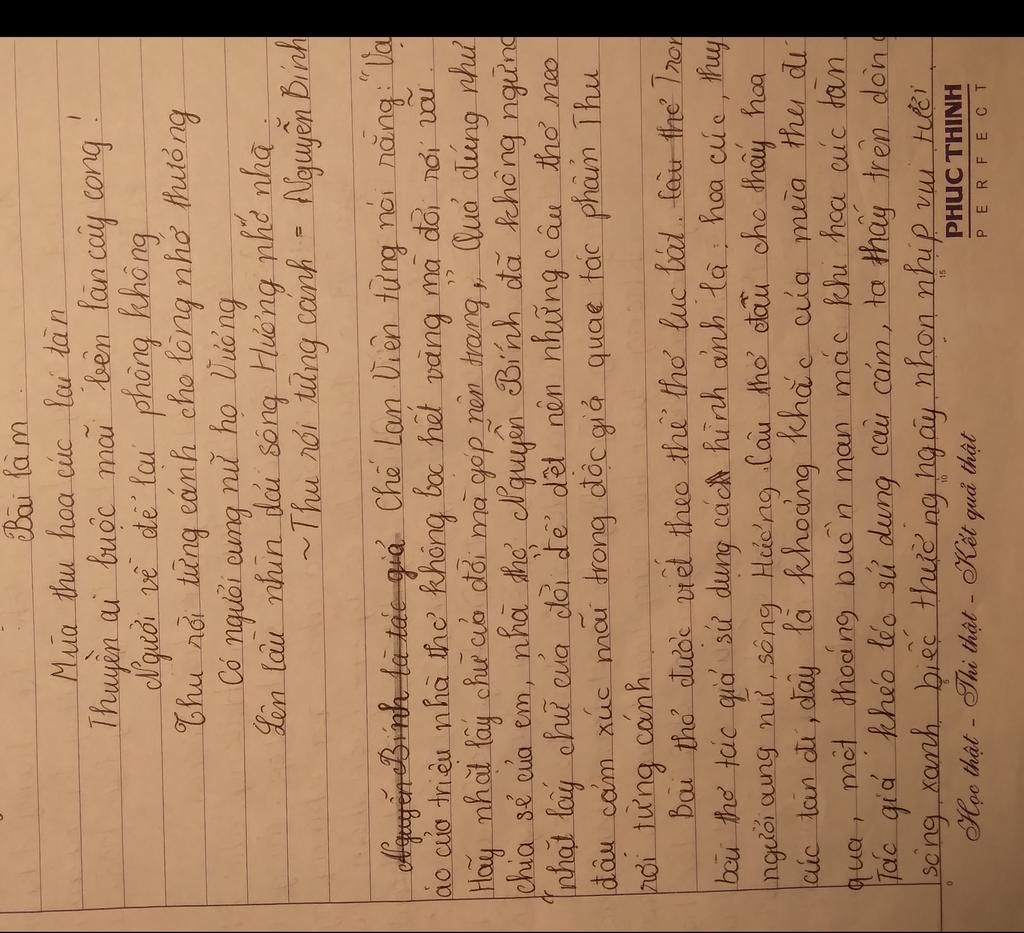 Bài làm
Mùa thu hoa cúc lại tàn
Thuyền ai buộc mãi bên làn cây cong!
Người về để lại phòng không
Thu rơi từng cánh cho lòng nhớ thương
Có người cung nữ họ Vương
Lên lầu nhìn dải sông Hương nhớ nhà.
~ Thu rơi từng cánh = Nguyễn Bính
Nguyễn Bính là tác giả Chế Lan Viên từng nói rằng: "Va
áo của triệu nhà thơ không bọc hết vàng mà đời rơi vãi.
Hãy nhặt lấy chữ của đời mà góp nên trang". Quả đúng như
chia sẻ của em, nhà thơ Nguyễn Bính đã không ngừng
"nhặt lấy chữ của đời" để dệt nên những câu thơ neo
đâu cảm xúc mãi trong độc giả qua tác phẩm Thu
rơi từng cánh
Bài thơ được viết theo thể thơ lục bát. Câu thơ Tron
bài thơ tác giả sử dụng các hình ảnh là: hoa cúc, thuy
người cung nữ, sông Hương. Câu thơ đầu cho thấy hoa
cúc tàn đi, đây là khoảng khắc của mùa thu đi
qua, một thoáng buồn man mác khi hoa cúc tàn.
Tác giả khéo léo sử dụng câu cảm, ta thấy trên dòng
sông xanh biếc thường ngày nhộn nhịp vui tươi,
15
10
5
0
Học thật - Thi thật - Kết quả thật
PHUC THINH
PERFECT